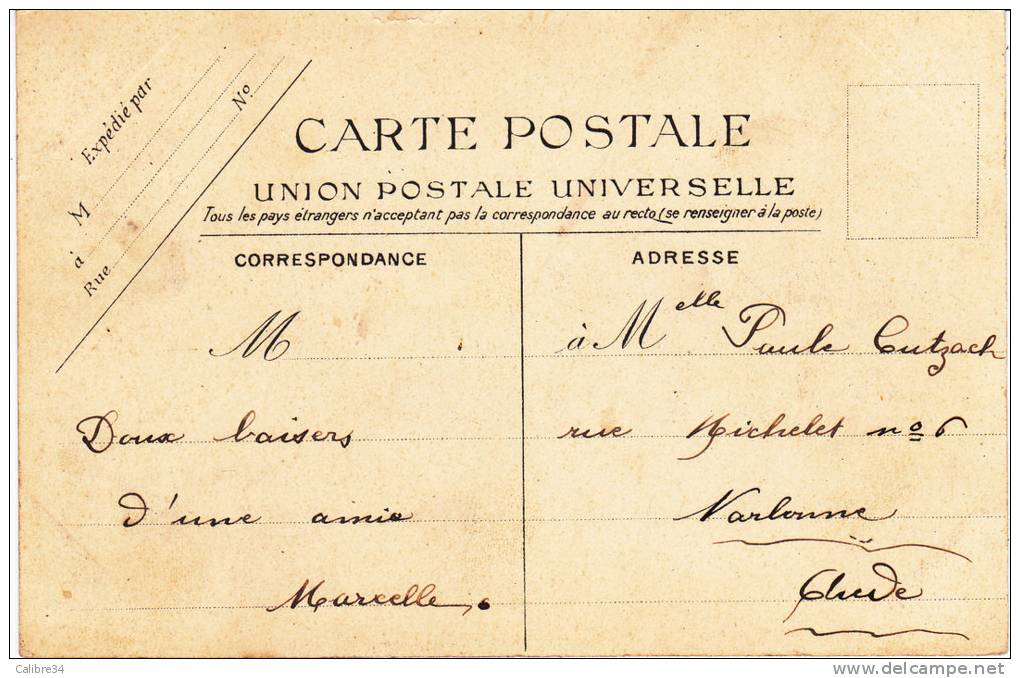 Expédié par
M
à
Rue
No.
CARTE POSTALE
UNION POSTALE UNIVERSELLE
Tous les pays étrangers n'acceptant pas la correspondance au recto (se renseigner à la poste)
CORRESPONDANCE
M
Doux baisers
d'une amie
Marcelle
ADRESSE
à Melle Paule Cutzach
rue Michelet no 6
Narbonne
Aude
Calibre34
delcampe.net